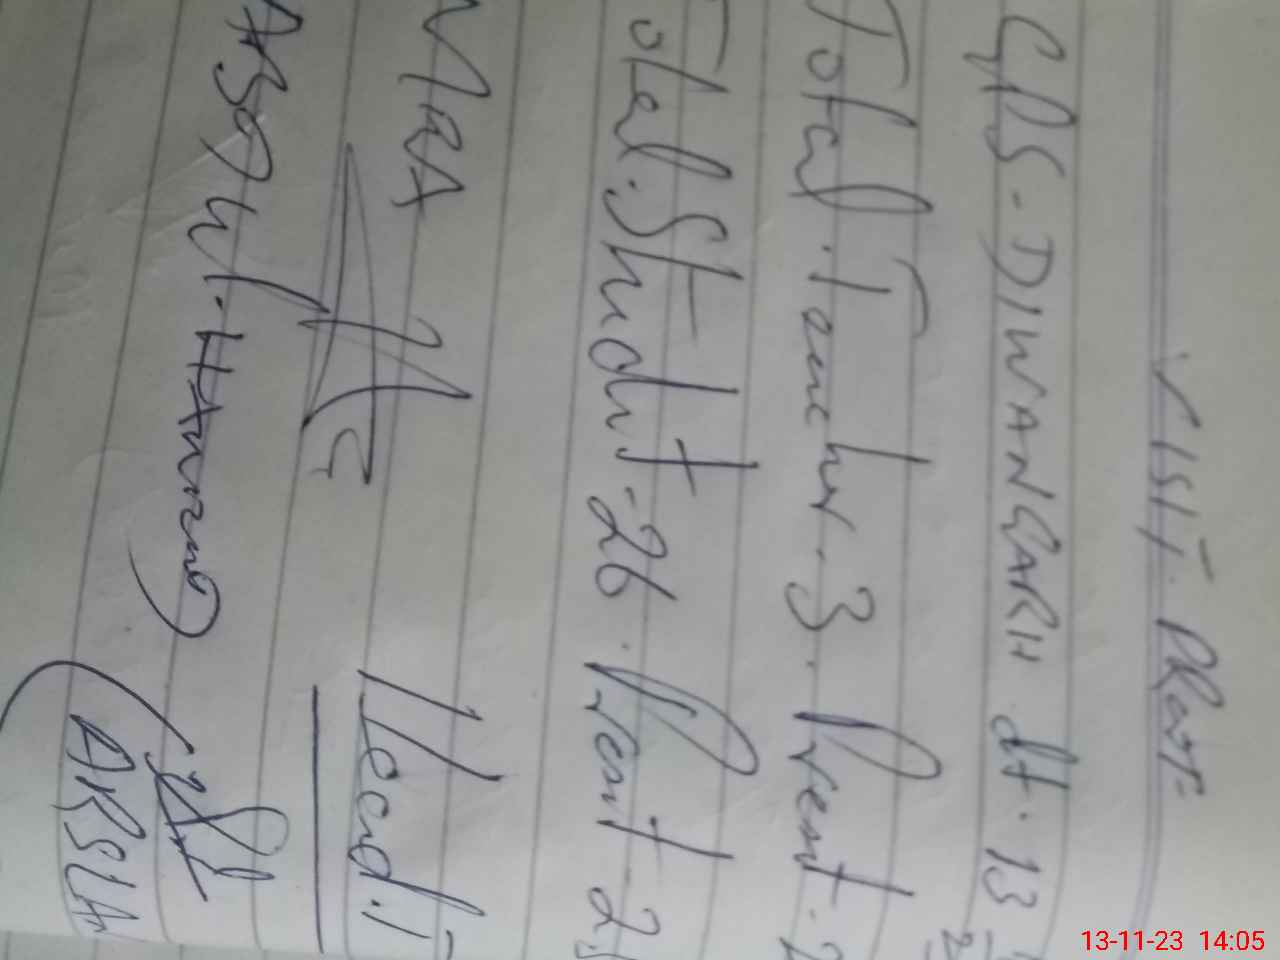 VISIT. PROOF
GPS-DIWANGARH dt. 13
Total. Teacher-3. Present-2
Total. Student-26. Present-2
MRA Head. T
ABDUL. HAMEED
ARSLA
13-11-23 14:05